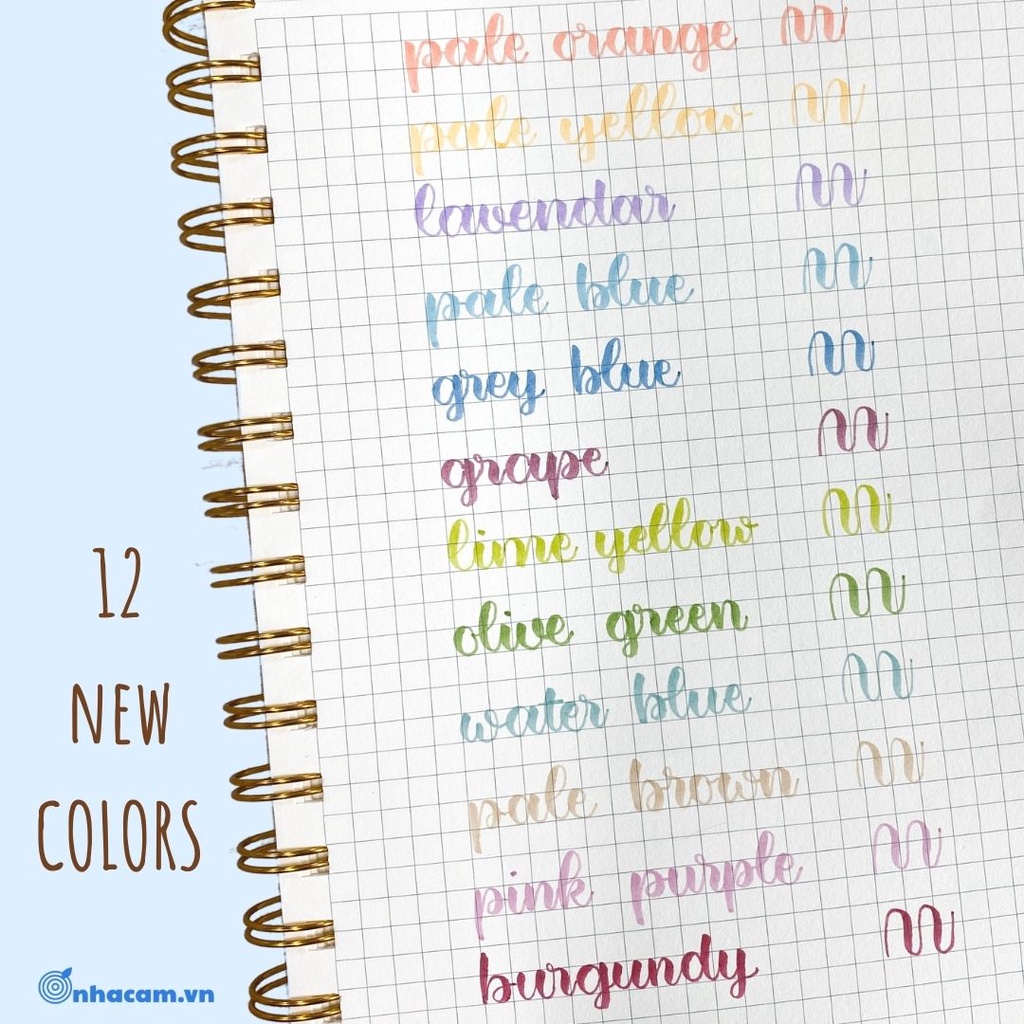 pale orange
pale yellow
lavendar
pale blue
grey blue
grape
lime yellow
olive green
water blue
pale brown
pink purple
burgundy
12
NEW
COLORS
nhacam.vn